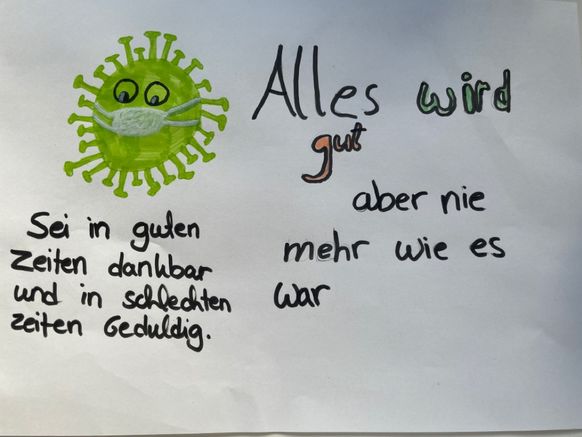 Alles wird
gut
aber nie
mehr wie es
war
Sei in guten
Zeiten dankbar
und in schlechten
zeiten Geduldig.